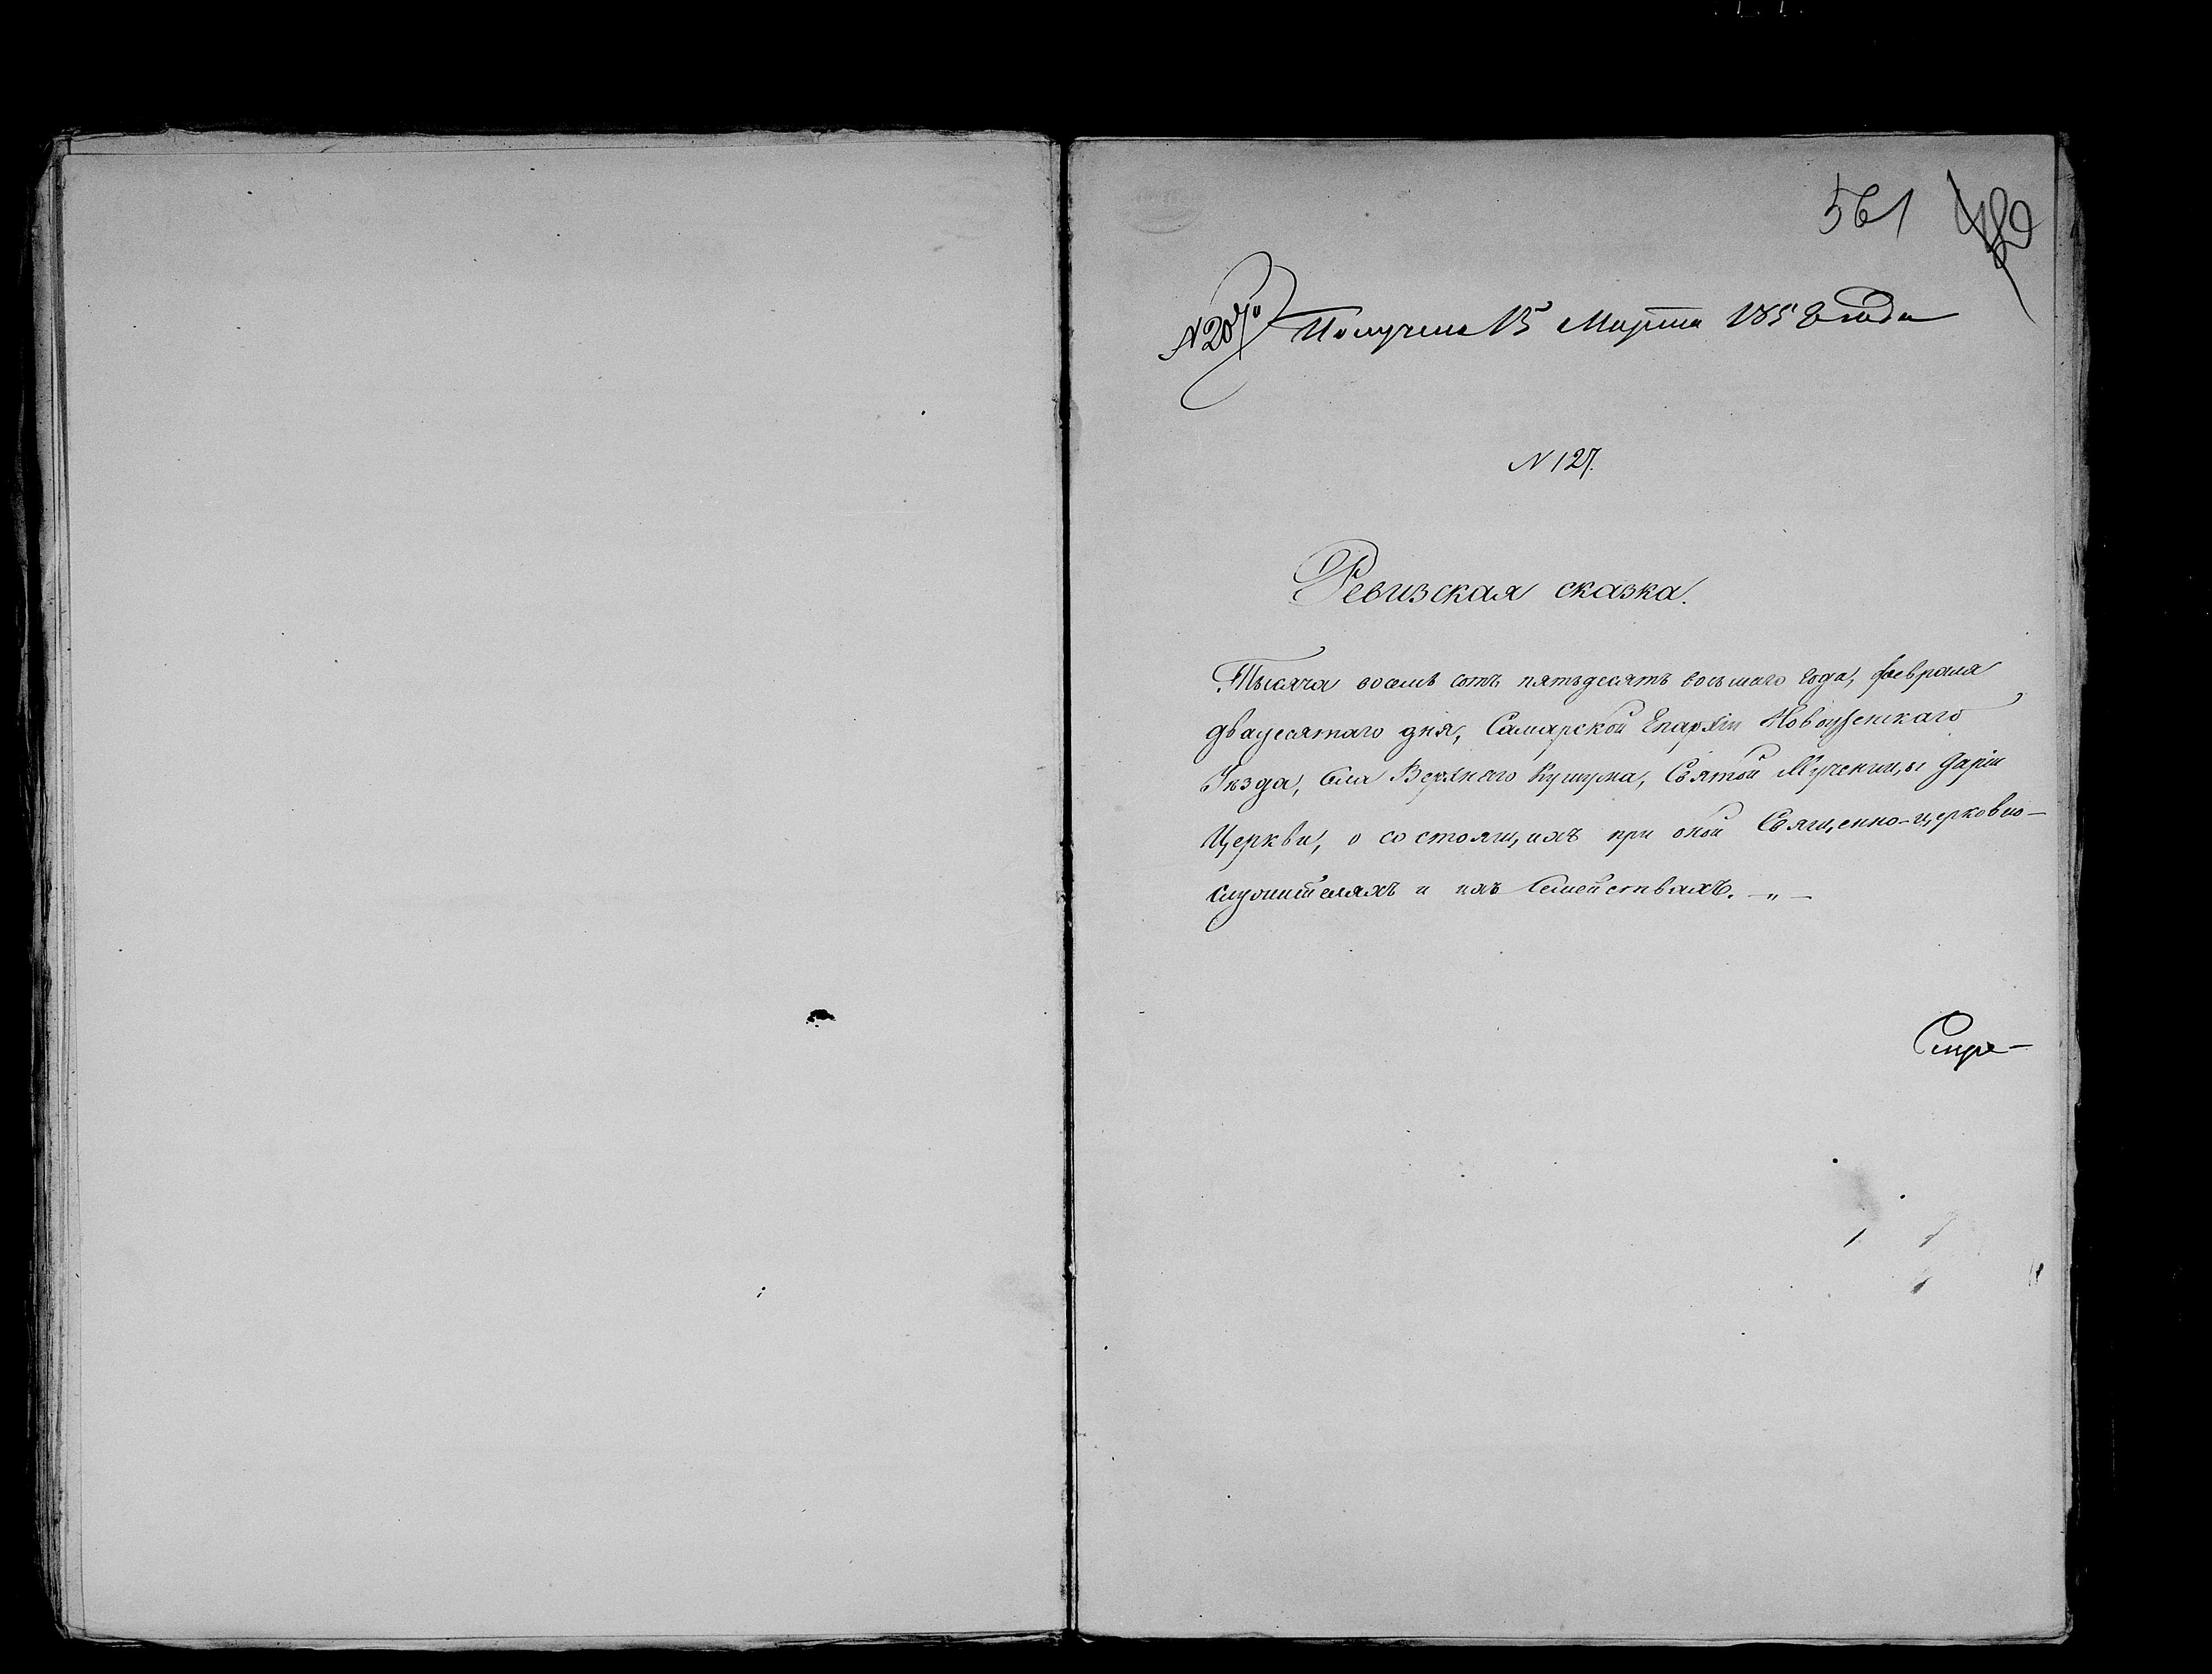 561
Получена 15 Марта 1858 года
N 127.
Ревизская сказка.
Тысяча восемь сотъ пятьдесятъ восьмаго года, февраля
двадесятаго дня, Самарской Епархіи Новоузенскаго
Уѣзда, села Верхняго Кушума, Святой Мученицы Даріи
Церкви, о состоящихъ при оной Священно-церковно-
служителяхъ и ихъ Семействахъ. -„-